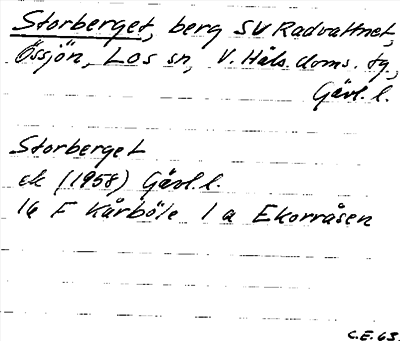 Storberget, berg SV Radvattnet,
Össjön, Los sn, V. Häls. doms. tg.,
Gävl. l.
Storberget
ek (1958) Gävl. l.
16 F Kårböle 1 a Ekorråsen
C.E. 63.